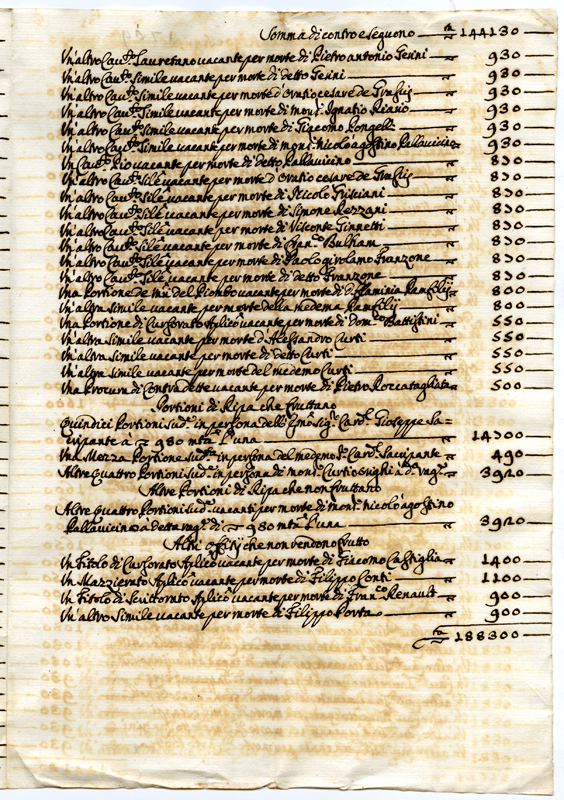 Somma di contro e seguono — 144130
Un'altro Cau.to Lauretano vacante per morte di Pietro antonio Gerini — 930
Un'altro Cau.to simile vacante per morte di detto Gerini — 930
Un'altro Cau.to Simile vacante per morte d'Oratio cesare de — 930
Un'altro Cau.to Simile vacante per morte di mons.r Ignatio Riario — 930
Un'altro Cau.to Simile vacante per morte di Giacomo Longelli — 930
Un'altro Cau.to Simile vacante per morte di mons.r nicolo agostino Pallavicino — 930
Un Cau.to Pio vacante per morte di detto Pallavicino — 830
Un'altro Cau.to Sile vacante per morte d'Oratio cesare de — 830
Un'altro Cau.to Sile vacante per morte di Nicolo — 830
Un'altro Cau.to Sile vacante per morte di Simone Rezzani — 830
Un'altro Cau.to Sile vacante per morte di Visconte Ginnetti — 830
Un'altro Cau.to Sile vacante per morte di Bulham — 830
Un'altro Cau.to Sile vacante per morte di Paolo girolamo Franzone — 830
Un'altro Cau.to Sile vacante per morte di detto Franzone — 830
Una Portione de del Piombo vacante per morte di d. flaminia Pamfilij — 800
Un'altra simile vacante per morte della medema Pamfilij — 800
Una Portione di Cursorato Aplico vacante per morte di dom.co Battistini — 550
Un'altra simile vacante per morte d'Alessandro Curti — 550
Un'altra simile vacante per morte di detto Curti — 550
Un'altra simile vacante per morte del medemo Curti — 550
Una Procura di Contradette vacante per morte di Pietro Roccatagliata — 500
Portioni di Ripa che fruttano
Quindici Portioni Sud.e in persona dell'Em.o Sig.r Card.l Gioseppe Sa=
cripante à 980 m.ta l'una — 14700
Una Mezza Portione Sud.a in persona del medemo S.r Card.l Sacripante — 490
Altre quattro Portioni Sud.e in persona di mons.r Curtio à d.a rag.e — 3920
Altre Portioni di Ripa che non fruttano
Altre quattro Portioni sud.e vacanti per morte di mons.r nicolo agostino
Pallavicino a detta rag.e di 980 m.ta l'una — 3920
Altri offitij che non rendono frutto
Un Titolo di Cursorato Aplico vacante per morte di Giacomo Castiglia — 1400
Un Mazzierato Aplico vacante per morte di Filippo Conti — 1100
Un Titolo di Scuttorato Aplico vacante per morte di Fran.co Renault — 900
Un'altro Simile vacante per morte di Filippo Porta — 900
188300